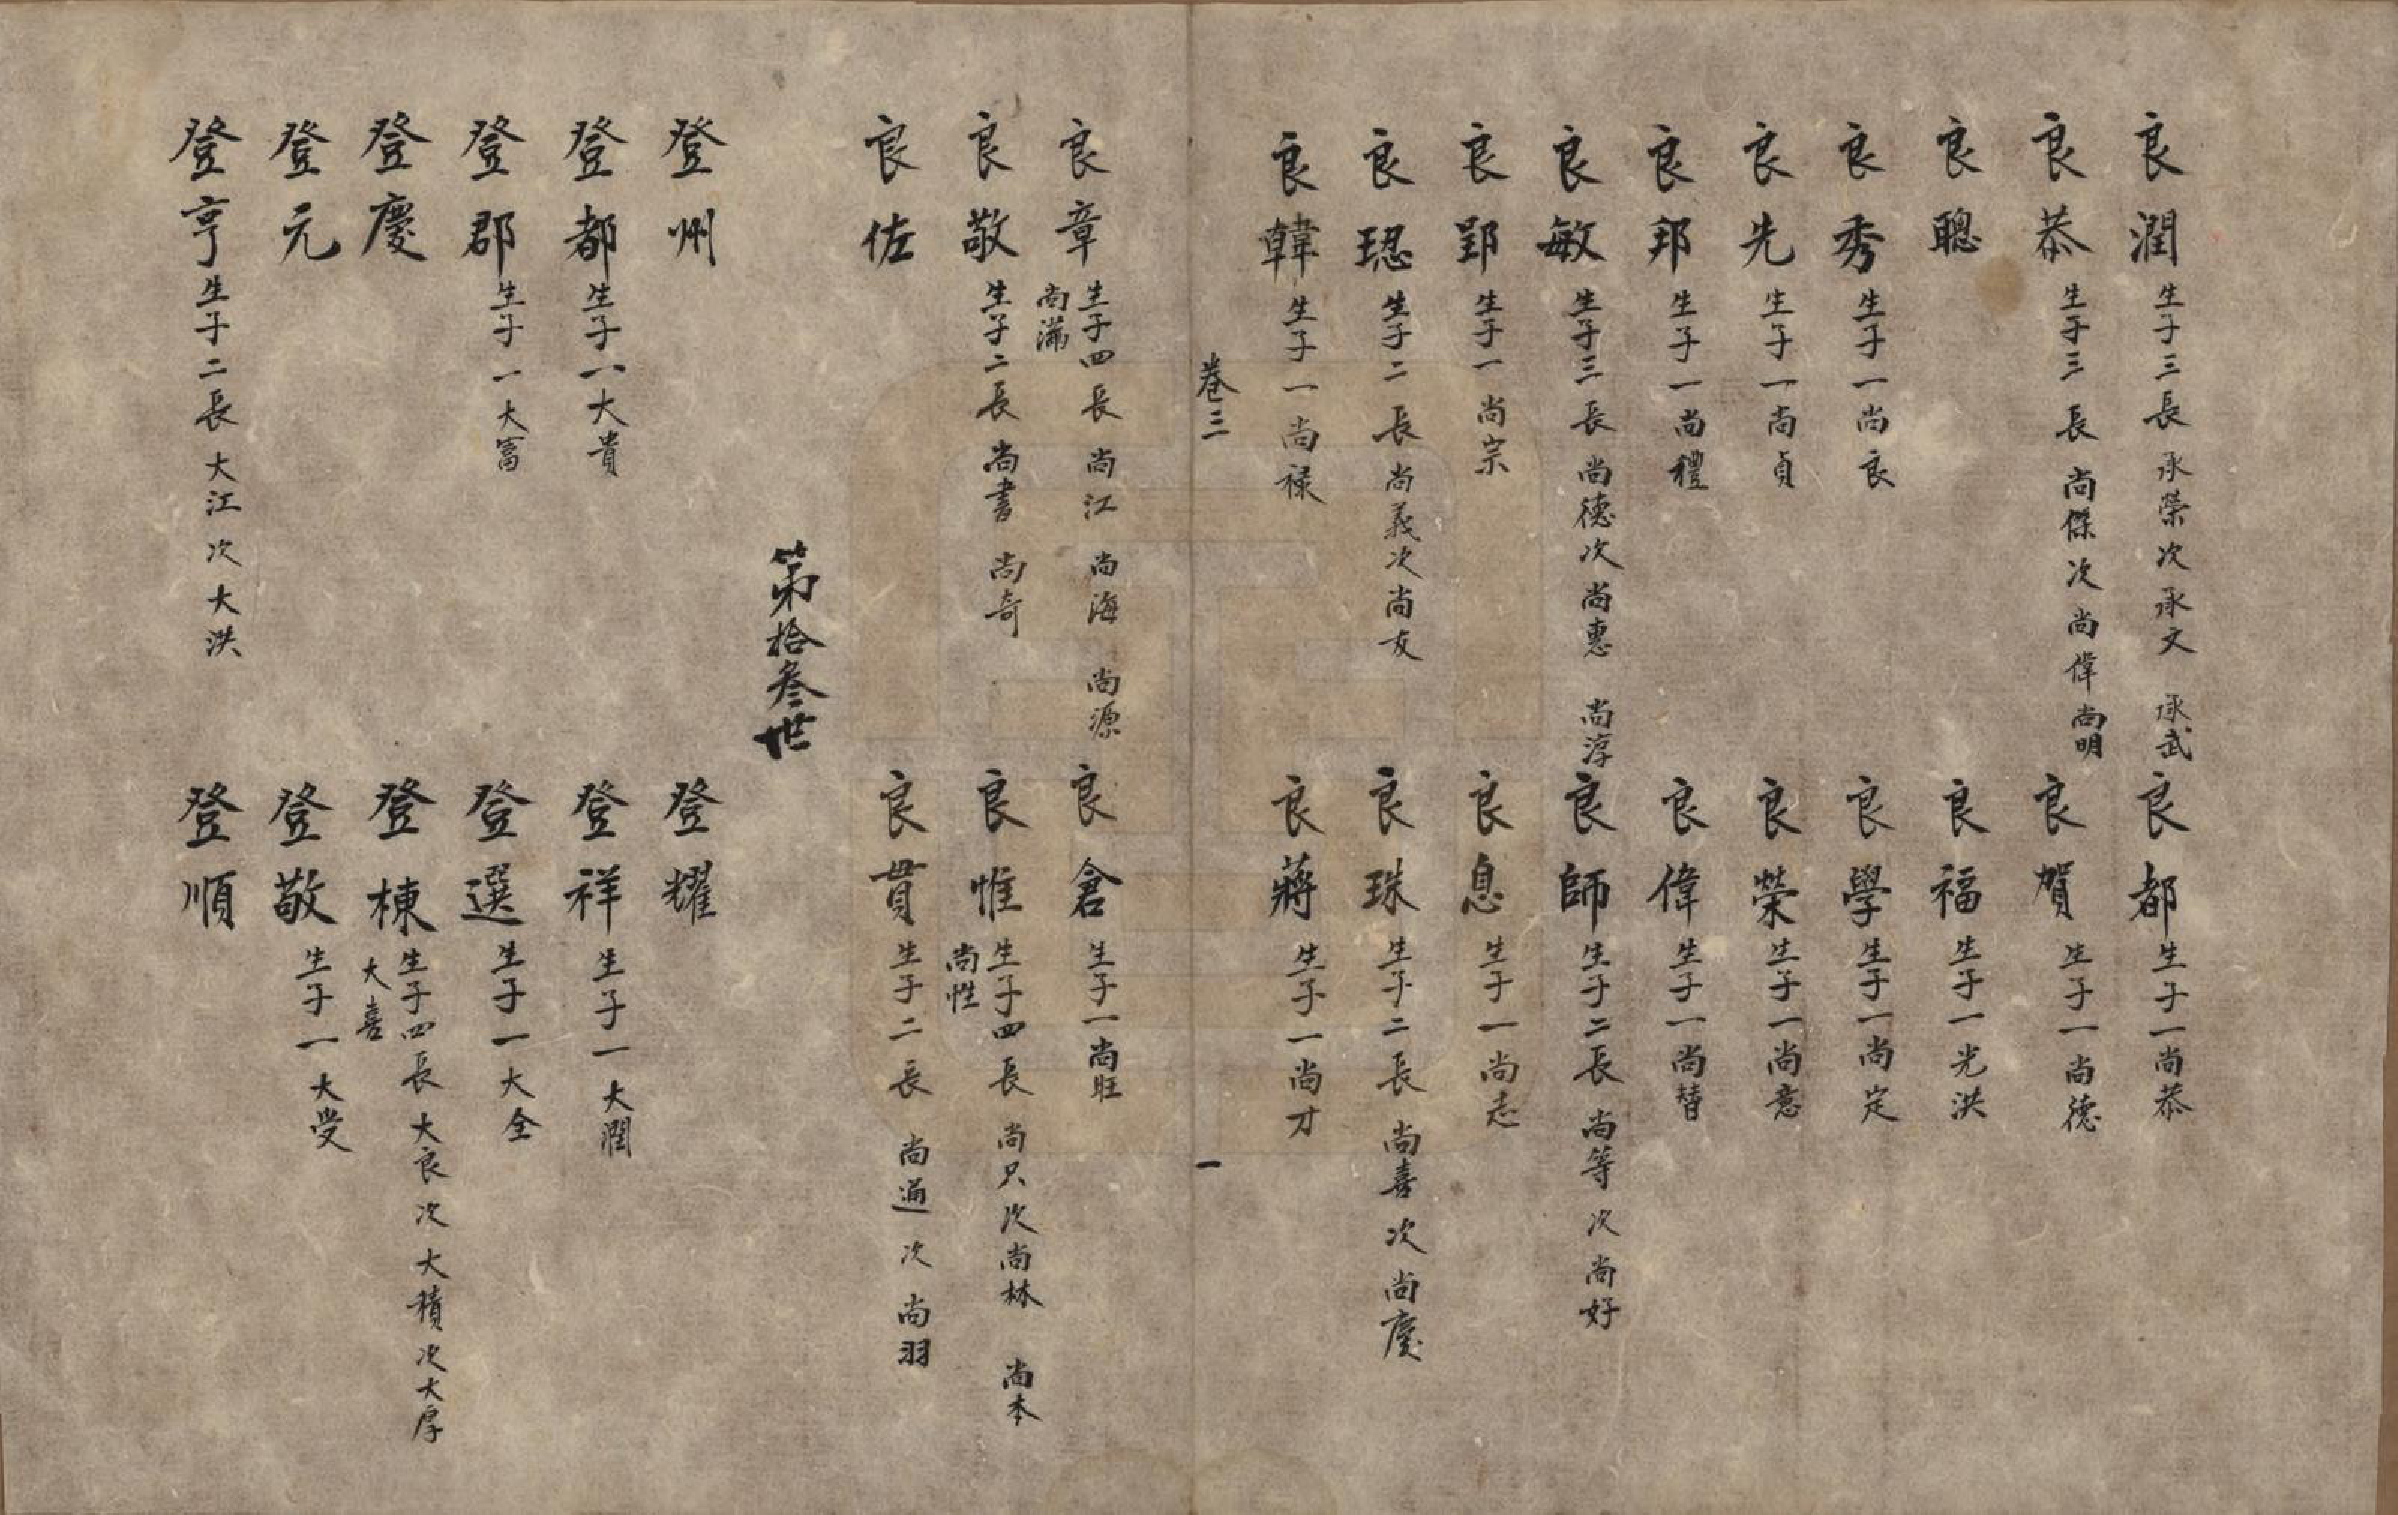 良潤 生子三長承榮次承文 承武
良都 生子一尚恭
良恭 生子三長尚傑次尚偉尚明
良賀 生子一尚德
良聰
良福 生子一光洪
良秀 生子一尚良
良學 生子一尚定
良先 生子一尚貞
良榮 生子一尚意
良邦 生子一尚禮
良偉 生子一尚替
良敏 生子三長尚德次尚惠 尚淳
良師 生子二長尚等次尚好
良郢 生子一尚宗
良息 生子一尚志
良璁 生子二長尚義次尚友
良珠 生子二長尚喜次尚慶
良韓 生子一尚祿
良蔣 生子一尚才
卷三
一
良章 生子四長尚江 尚海 尚源
尚滿
良倉 生子一尚旺
良敬 生子二長尚書 尚奇
良惟 生子四長尚只次尚林 尚本
尚性
良佐
良貫 生子二長尚通次尚羽
第拾叄世
登州
登耀
登都 生子一大貴
登祥 生子一大潤
登郡 生子一大富
登選 生子一大全
登慶
登棟 生子四長大良次大積次大厚
大喜
登元
登敬 生子一大受
登亨 生子二長大江次大洪
登順